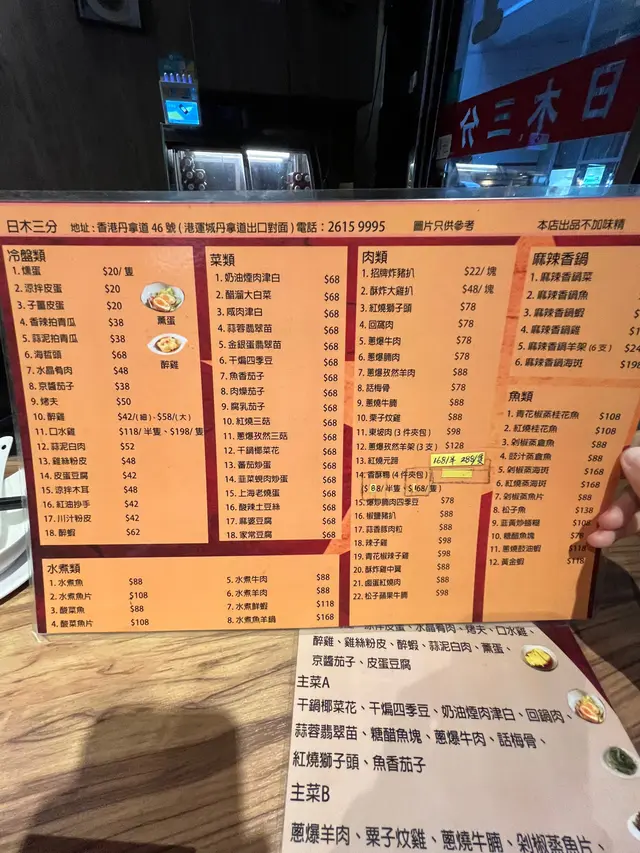 日木三分
日木三分 地址：香港丹拿道 46 號（港運城丹拿道出口對面）電話：2615 9995 圖片只供參考 本店出品不加味精
冷盤類
1. 燻蛋 $20/ 隻
2. 涼拌皮蛋 $20
3. 子薑皮蛋 $20
4. 香辣拍青瓜 $38
5. 蒜泥拍青瓜 $38
6. 海哲頭 $68
7. 水晶肴肉 $48
8. 京醬茄子 $38
9. 烤夫 $50
10. 醉雞 $42/(細) - $58/(大)
11. 口水雞 $118/ 半隻、$198/ 隻
12. 蒜泥白肉 $52
13. 雞絲粉皮 $48
14. 皮蛋豆腐 $42
15. 涼拌木耳 $48
16. 紅油抄手 $42
17. 川汁粉皮 $42
18. 醉蝦 $62
薰蛋
醉雞
菜類
1. 奶油煙肉津白 $68
2. 醋溜大白菜 $68
3. 咸肉津白 $68
4. 蒜蓉翡翠苗 $68
5. 金銀蛋翡翠苗 $68
6. 干煸四季豆 $68
7. 魚香茄子 $68
8. 肉燥茄子 $68
9. 腐乳茄子 $68
10. 紅燒三菇 $68
11. 蔥爆孜然三菇 $68
12. 干鍋椰菜 $68
13. 番茄炒蛋 $68
14. 韮菜蜆肉炒蛋 $68
15. 上海老燒蛋 $68
16. 酸辣土豆絲 $68
17. 麻婆豆腐 $68
18. 家常豆腐 $68
肉類
1. 招牌炸豬扒 $22/ 塊
2. 酥炸大雞扒 $48/ 塊
3. 紅燒獅子頭 $78
4. 回窩肉 $78
5. 蔥爆牛肉 $78
6. 蔥爆腩肉 $78
7. 蔥爆孜然羊肉 $88
8. 話梅骨 $78
9. 蔥燒牛腩 $88
10. 栗子炆雞 $88
11. 東坡肉 (3 件夾包) $98
12. 蔥爆孜然羊架 (3 支) $128
13. 紅燒元蹄 168/半 288/隻
14. 香酥鴨 (4 件夾包)
($88/ 半隻、$168/ 隻)
15. 爆炒腩肉四季豆 $78
16. 椒鹽豬扒 $88
17. 蒜香豚肉粒 $88
18. 辣子雞 $98
19. 青花椒辣子雞 $98
20. 酥炸雞中翼 $88
21. 鹵蛋紅燒肉 $88
22. 松子蘋果牛腩 $98
麻辣香鍋
1. 麻辣香鍋菜
2. 麻辣香鍋魚
3. 麻辣香鍋蝦
4. 麻辣香鍋雞
5. 麻辣香鍋羊架 (6 支) $24
6. 麻辣香鍋海斑 $198
魚類
1. 青花椒蒸桂花魚 $108
2. 紅燒桂花魚 $108
3. 剁椒蒸倉魚 $88
4. 豉汁蒸倉魚 $88
5. 剁椒蒸海斑 $168
6. 紅燒蒸海斑 $168
7. 剁椒蒸魚片 $88
8. 松子魚 $138
9. 韮黃炒鱔糊 $108
10. 糖醋魚塊 $78
11. 蔥燒鼓油蝦 $118
12. 黃金蝦 $118
水煮類
1. 水煮魚 $88
2. 水煮魚片 $108
3. 酸菜魚 $88
4. 酸菜魚片 $108
5. 水煮牛肉 $88
6. 水煮羊肉 $88
7. 水煮鮮蝦 $118
8. 水煮魚羊鍋 $168
涼拌皮蛋、水晶肴肉、烤夫、口水雞、
醉雞、雞絲粉皮、醉蝦、蒜泥白肉、薰蛋、
京醬茄子、皮蛋豆腐
主菜A
干鍋椰菜花、干煸四季豆、奶油煙肉津白、回鍋肉、
蒜蓉翡翠苗、糖醋魚塊、蔥爆牛肉、話梅骨、
紅燒獅子頭、魚香茄子
主菜B
蔥爆羊肉、栗子炆雞、蔥燒牛腩、剁椒蒸魚片、